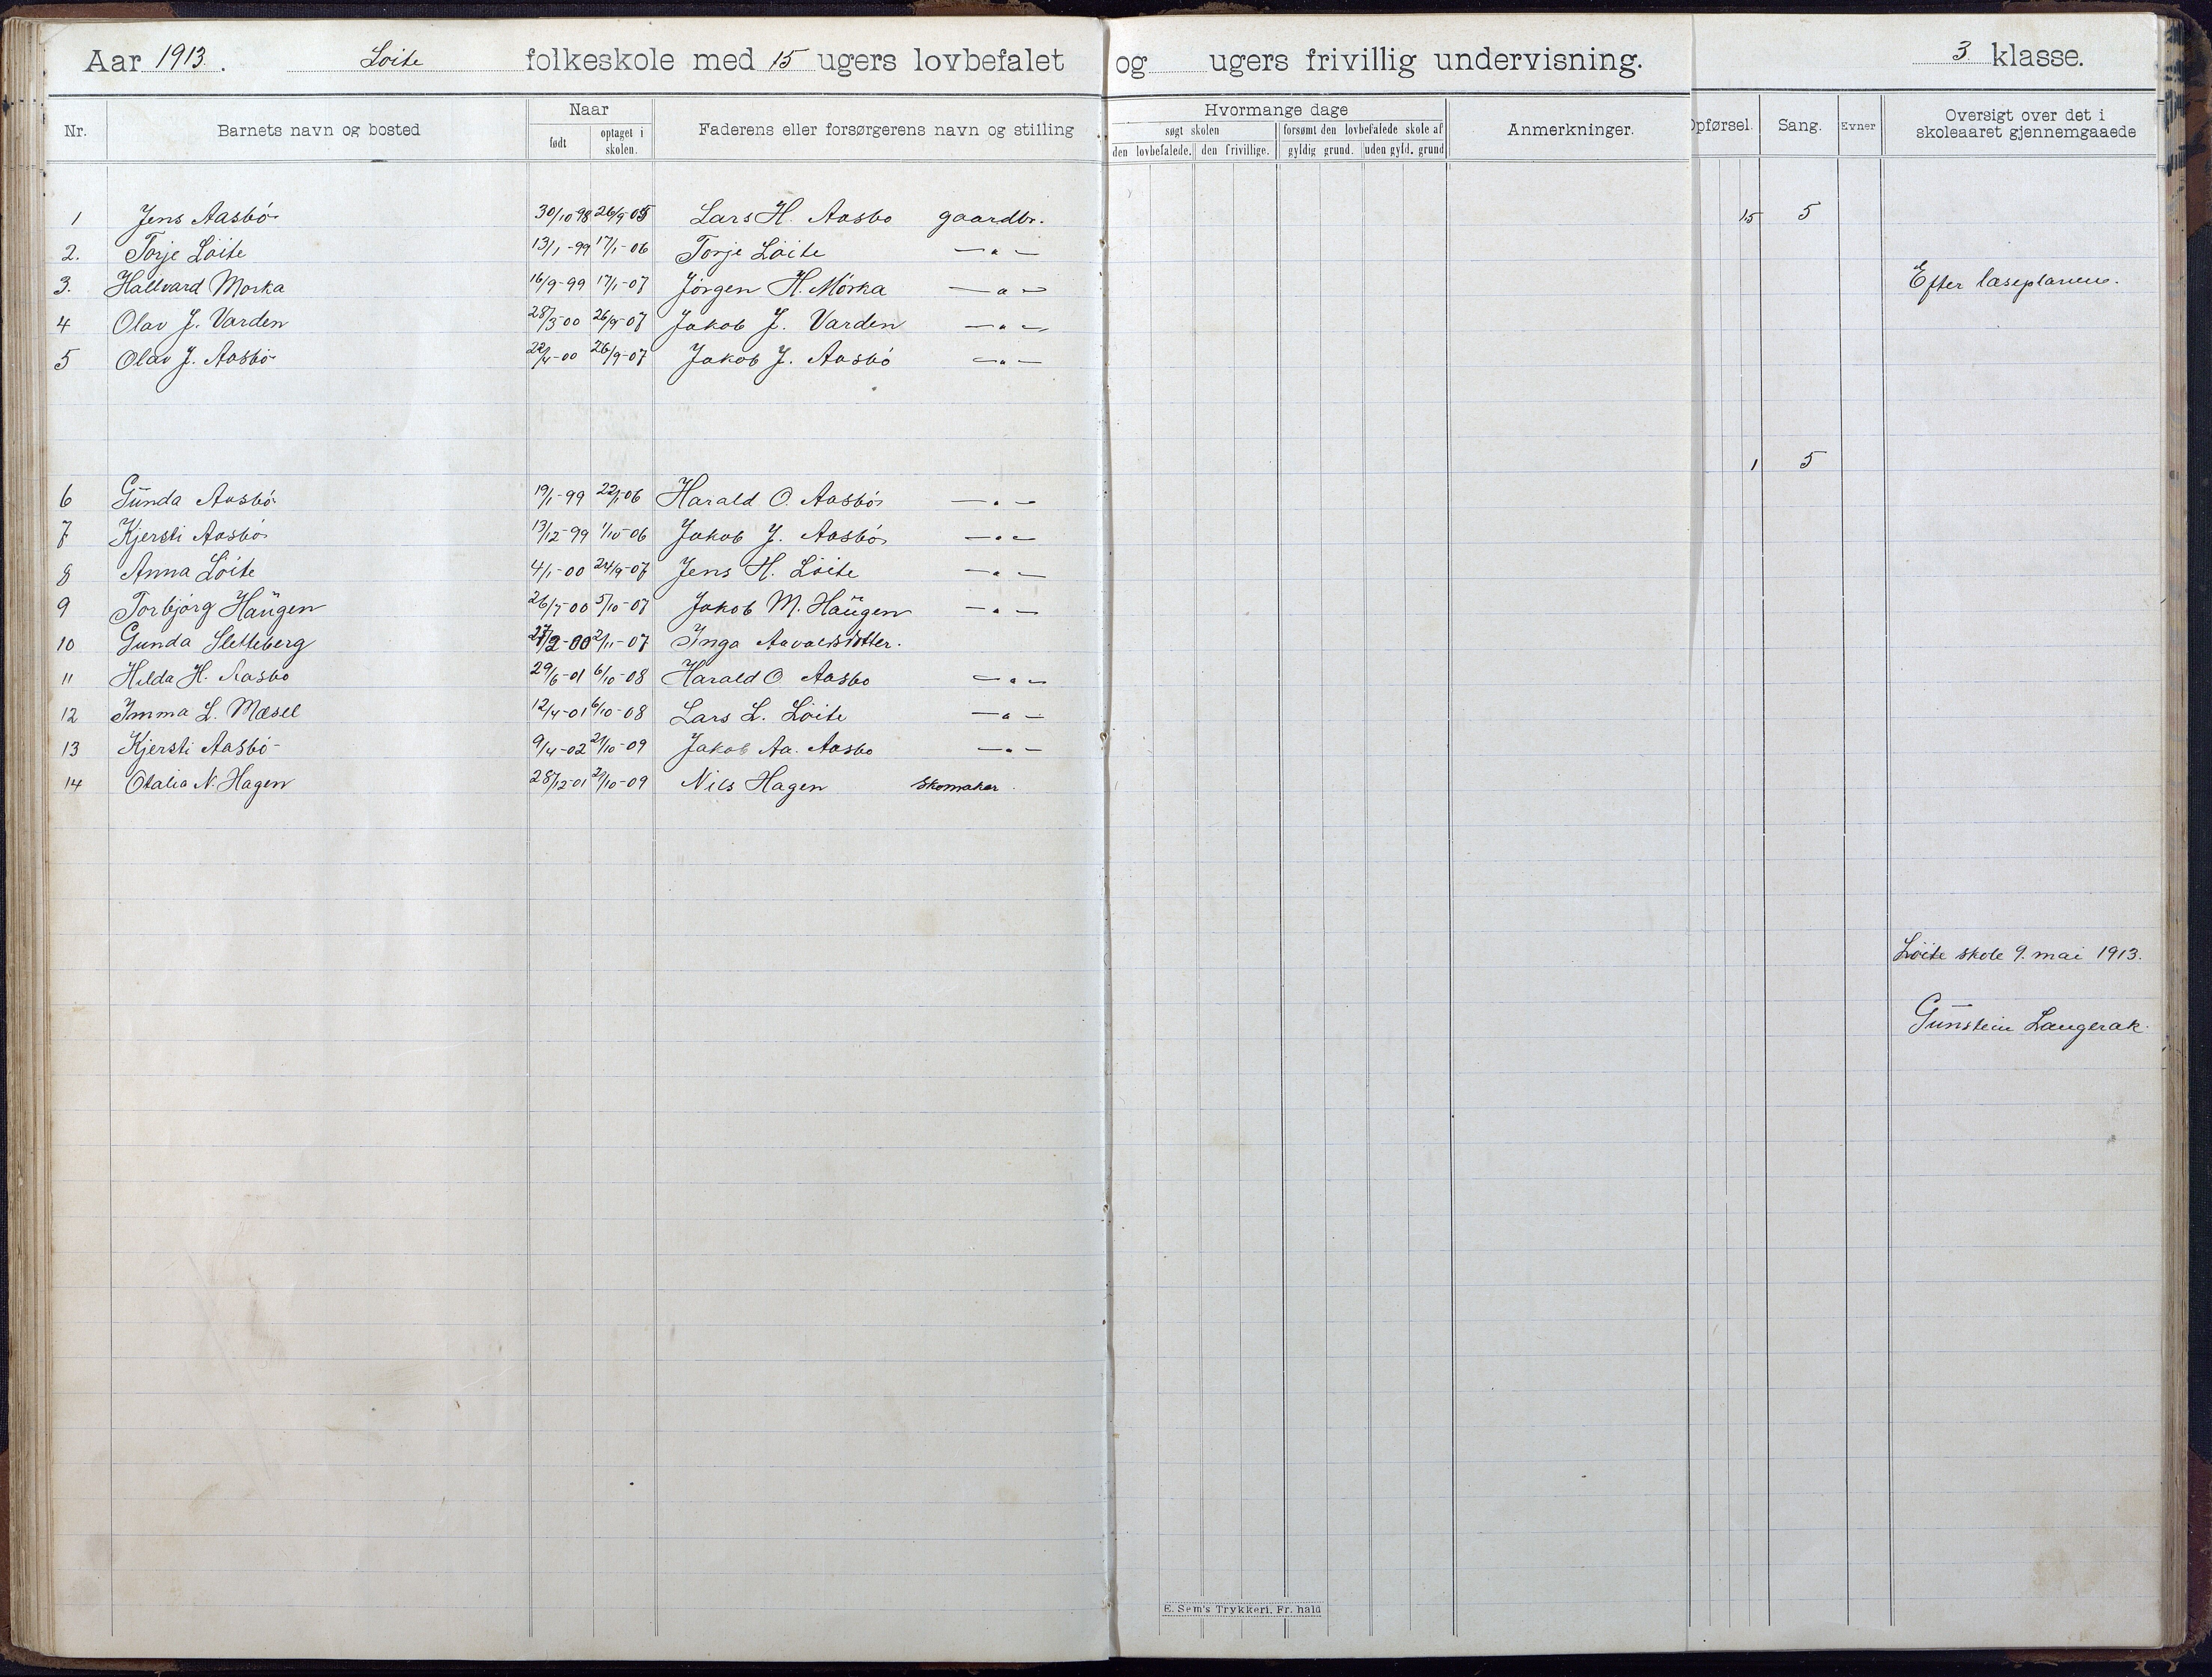 Aar 1913. Löite folkeskole med 15 ugers lovbefalet og ugers frivillig undervisning. 3 klasse.
Nr. Barnets navn og bosted Naar født optaget i skolen. Faderens eller forsørgerens navn og stilling Hvormange dage søgt skolen den lovbefalede. den frivillige. forsømt den lovbefalede skole af gyldig grund. uden gyld. grund Anmerkninger. Opførsel. Sang. Evner Oversigt over det i skoleaaret gjennemgaaede
1 Jens Aasbö 30/10 98 26/9 05 Lars H. Aasbo gaardbr. 15 5
2. Torje Löite 13/1-99 17/1-06 Torje Löite —"—
3. Hallvard Morka 16/9-99 17/1-07 Jörgen H. Mörka —"— Efter læseplanen.
4 Olav J. Varden 28/3-00 26/9-07 Jakob J. Varden —"—
5 Olav J. Aasbö 22/4-00 26/9-07 Jakob J. Aasbö —"—
1 5
6 Gunda Aasbö 19/1-99 22/1-06 Harald O. Aasbö —"—
7 Kjersti Aasbö 13/12-99 1/10-06 Jakob J. Aasbö —"—
8 Anna Löite 4/1-00 24/9-07 Jens H. Löite —"—
9 Torbjörg Haugen 26/7-00 5/10-07 Jakob M. Haugen —"—
10 Gunda Sletteberg 27/2-00 2/11-07 Inga
11 Hilda H. Aasbo 29/6-01 6/10-08 Harald O. Aasbo —"—
12 Imma L. Mæsel 12/4-01 6/10-08 Lars L. Löite —"—
13 Kjersti Aasbö 9/4-02 21/10-09 Jakob Aa. Aasbo —"—
14 Otalia N. Hagen 28/12-01 21/10-09 Nils Hagen skomaker.
Löite skole 9. mai 1913.
Gunstein Langerak.
E. Sem's Trykkeri, Fr.hald